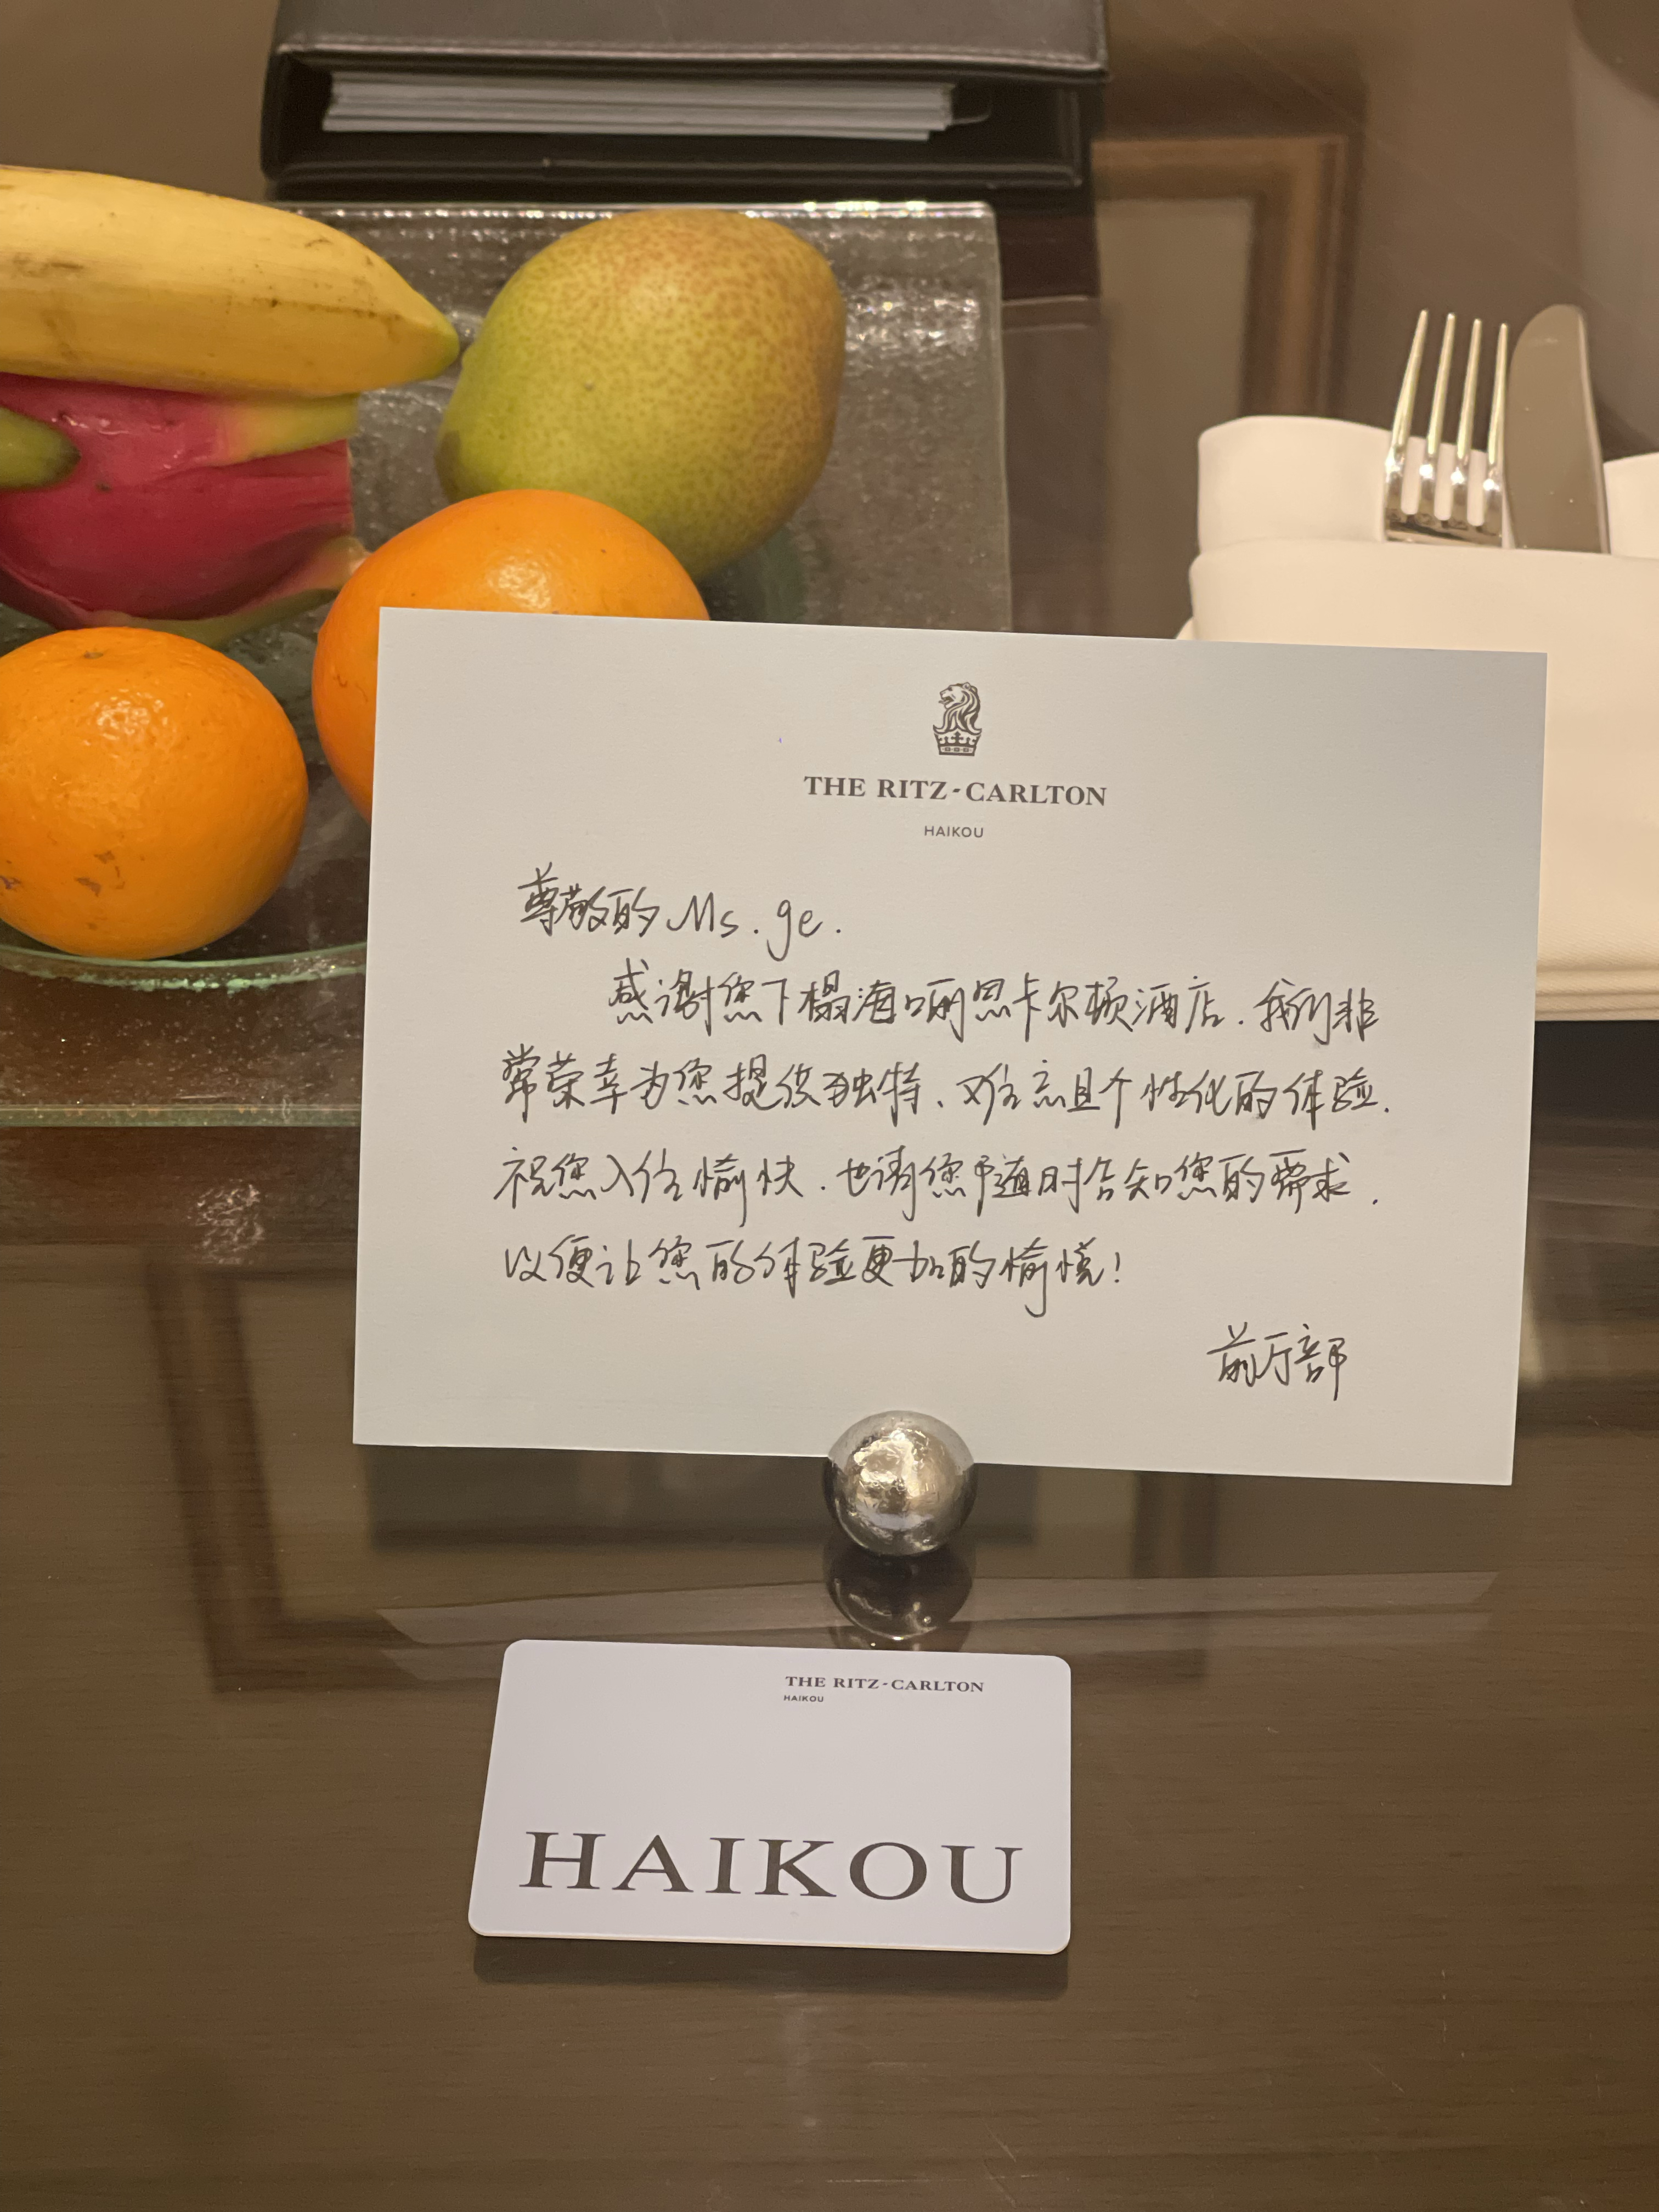 THE RITZ-CARLTON
HAIKOU
尊敬的 Ms. ge.
感谢您下榻海口丽思卡尔顿酒店.我们非
常荣幸为您提供独特、难忘且个性化的体验.
祝您入住愉快.也请您随时告知您的需求.
以便让您的体验更加的愉悦!
前厅部
THE RITZ-CARLTON
HAIKOU
HAIKOU